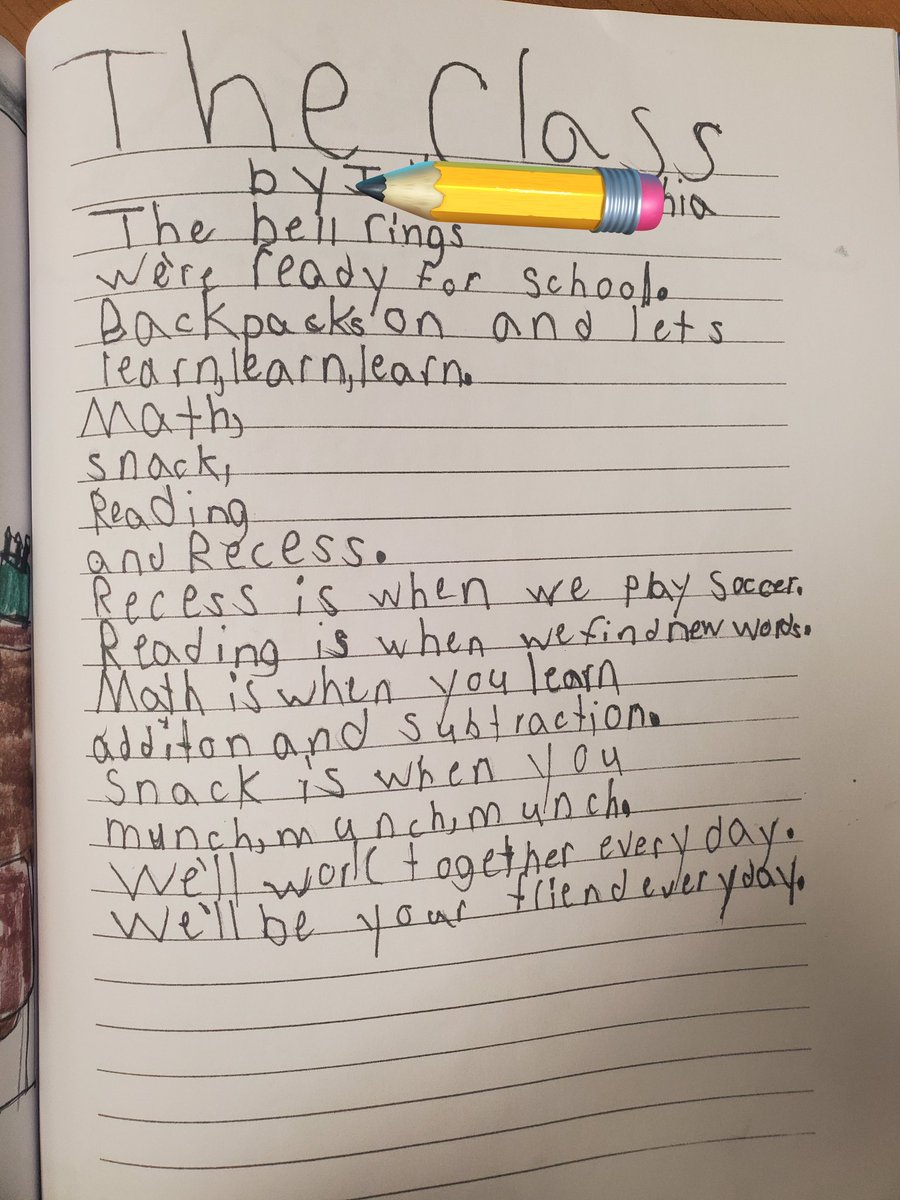 The Class
by
The bell rings
We're ready for school.
Backpacks on and lets
learn, learn, learn.
Math,
snack,
Reading
and Recess.
Recess is when we play soccer.
Reading is when we find new words.
Math is when you learn
additon and subtraction.
Snack is when you
munch, munch, munch.
We'll work together every day.
We'll be your friend everyday.